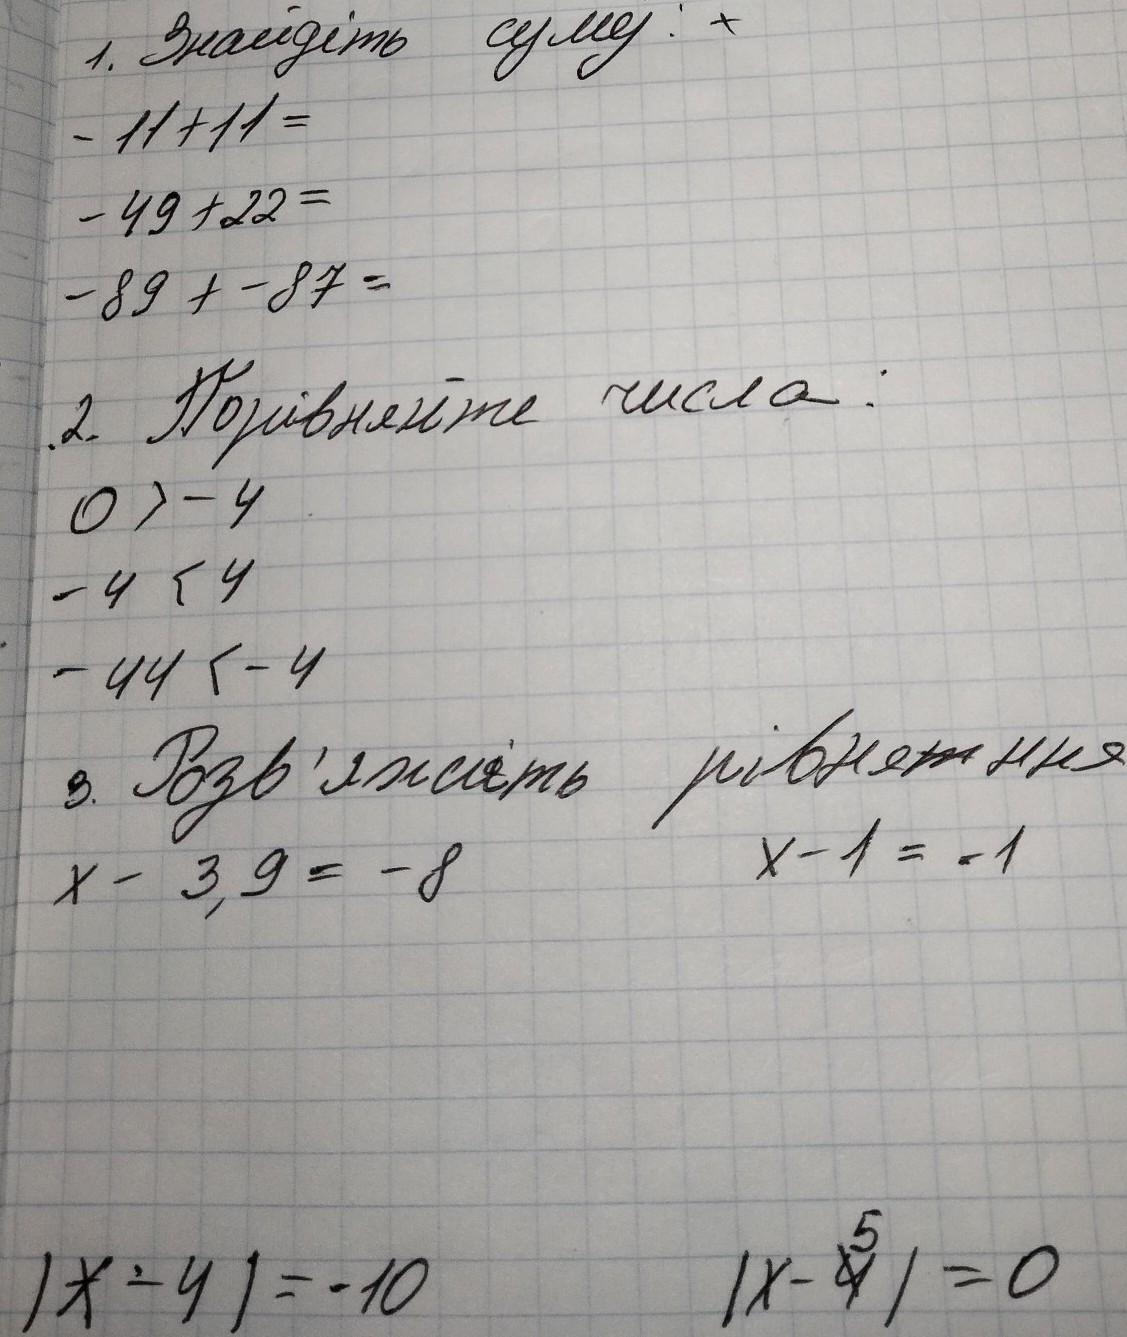 1. Знайдіть суму: +
-11+11=
-49+22=
-89+-87=
2. Порівняйте числа:
0>-4
-4<4
-44<-4
3. Розв'яжіть рівняння
x-3,9=-8 x-1=-1
|x-4|=-10 |x-5|=0